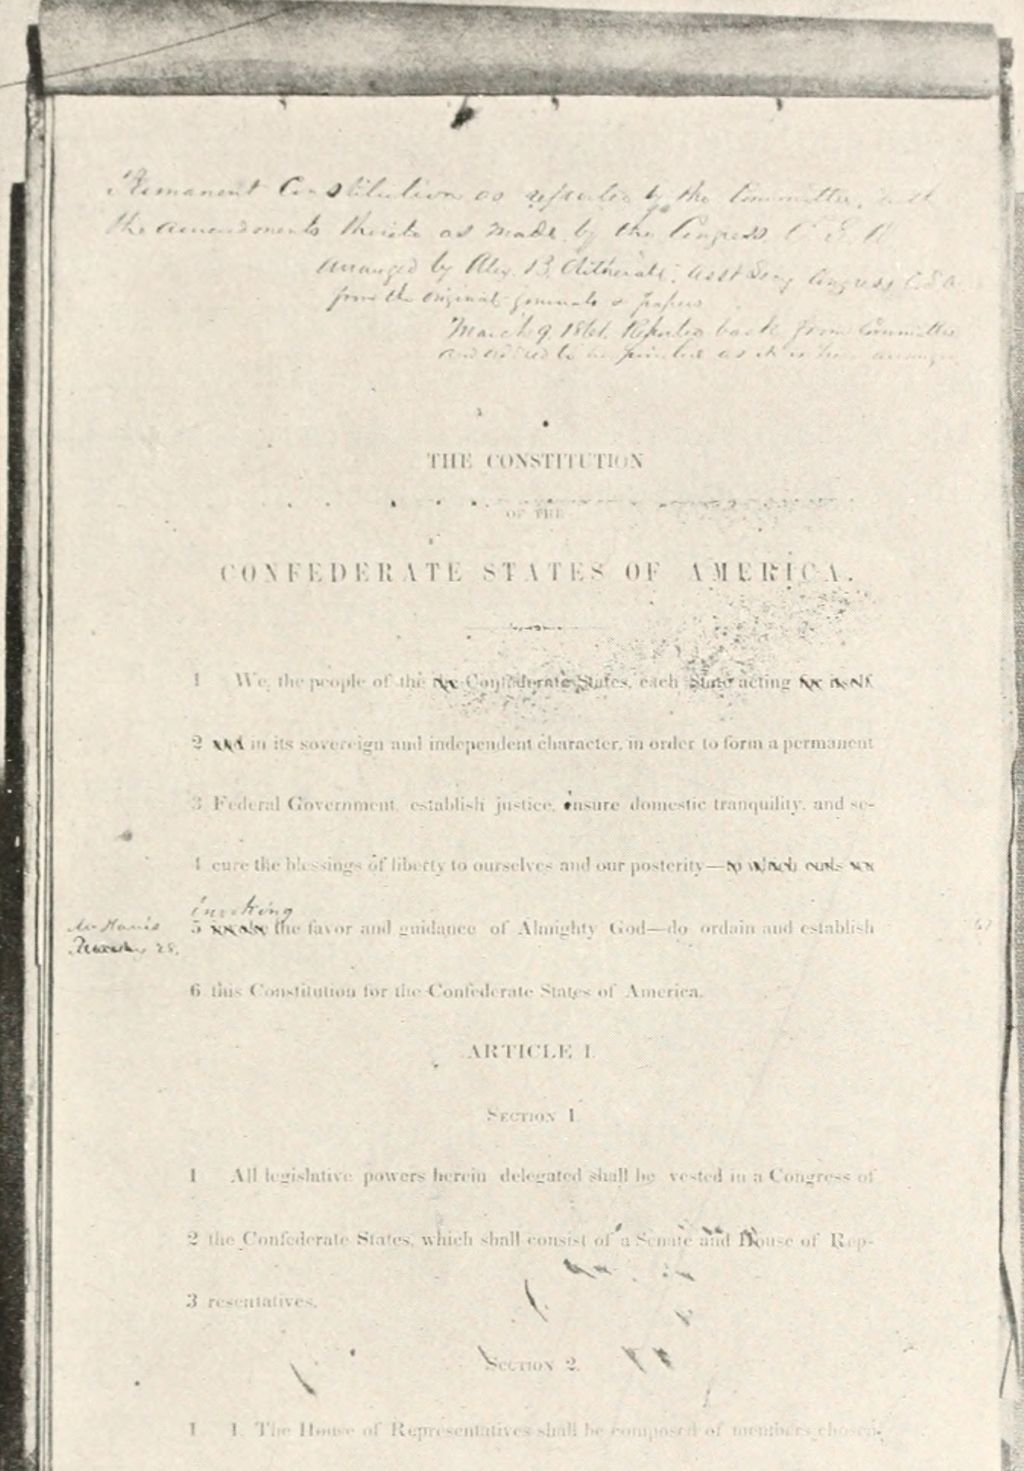 Permanent Constitution as reported by the Committee, with
the amendments thereto as made by the Congress C. S. A
arranged by Alex. B. Clitherall, asst Secy Congress C.S.A.
from the original journals & papers
March 9, 1861. Reported back from Committee
and ordered to be printed as it is here arranged
THE CONSTITUTION
OF THE
CONFEDERATE STATES OF AMERICA.
1 We, the people of the Confederate States, each State acting for itself
2 and in its sovereign and independent character, in order to form a permanent
3 Federal Government, establish justice, insure domestic tranquility, and se-
4 cure the blessings of liberty to ourselves and our posterity—to which ends we
invoking
Mr Harris
5 invoke the favor and guidance of Almighty God—do ordain and establish
28.
6 this Constitution for the Confederate States of America.
ARTICLE I.
SECTION 1.
1 All legislative powers herein delegated shall be vested in a Congress of
2 the Confederate States, which shall consist of a Senate and House of Rep-
3 resentatives.
SECTION 2.
1 1. The House of Representatives shall be composed of members chosen